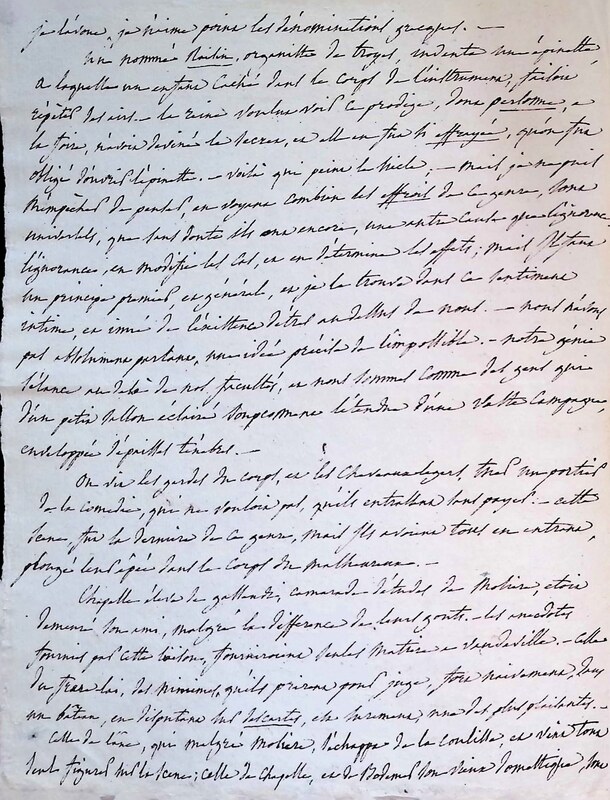 je l'avoue, je n'aime point les dénominations grecques. —
un nommé Raisin, organiste de troyes, inventa une épinette
a laquelle un enfant caché dans le corps de l'instrument, faisoit
répéter des airs. — la reine voulut voir ce prodige, dont personne, a
la foire, n'avoit deviné le secret, et elle en fut si effrayée, qu'on fut
obligé d'ouvrir l'épinette. — voilà qui peint le siècle, — mais je ne puis
m'empêcher de penser, en voyant combien les effrois de ce genre, sont
universels, que sans doute ils ont encore, une autre cause que l'ignorance.
l'ignorance, en modifie les cas, et en détermine les effets; mais il faut
un principe premier en général, et je le trouve dans ce sentiment
intime et inné de l'existence d'êtres au dessus de nous. — nous n'avons
pas absolument partant, une idée précise de l'impossible. — notre génie
s'élance au delà de nos facultés, et nous sommes comme des gens qui
d'un petit sallon éclairé soupçonnent l'étendue d'une vaste campagne,
enveloppée d'épaisses ténèbres. —
On vit les gardes du corps, et les chevaux légers, tuer un portier
de la comédie, qui ne vouloit pas, qu'ils entrassent sans payer. — cette
scène, fut la dernière de ce genre, mais ils avoient tous en entrant,
plongé leur épée dans le corps du malheureux. —
Chapelle élève de gassendi, camarade d'études de Molière, étoit
demeuré son ami, malgré la différence de leurs gouts. — les anecdotes
fournies par cette liaison, fourniroient seules matière a vaudeville. — celle
du frère lai, des minimes, qu'ils prirent pour juge, fort naivement, sous
un bâteau, en disputant sur descartes, est surement, une des plus plaisantes. —
Celle de l'âne, qui malgré Molière, s'échappa de la coulisse, et vint tout
seul figurer sur la scène; celle de Chapelle, et de Godemer son vieux domestique, sont